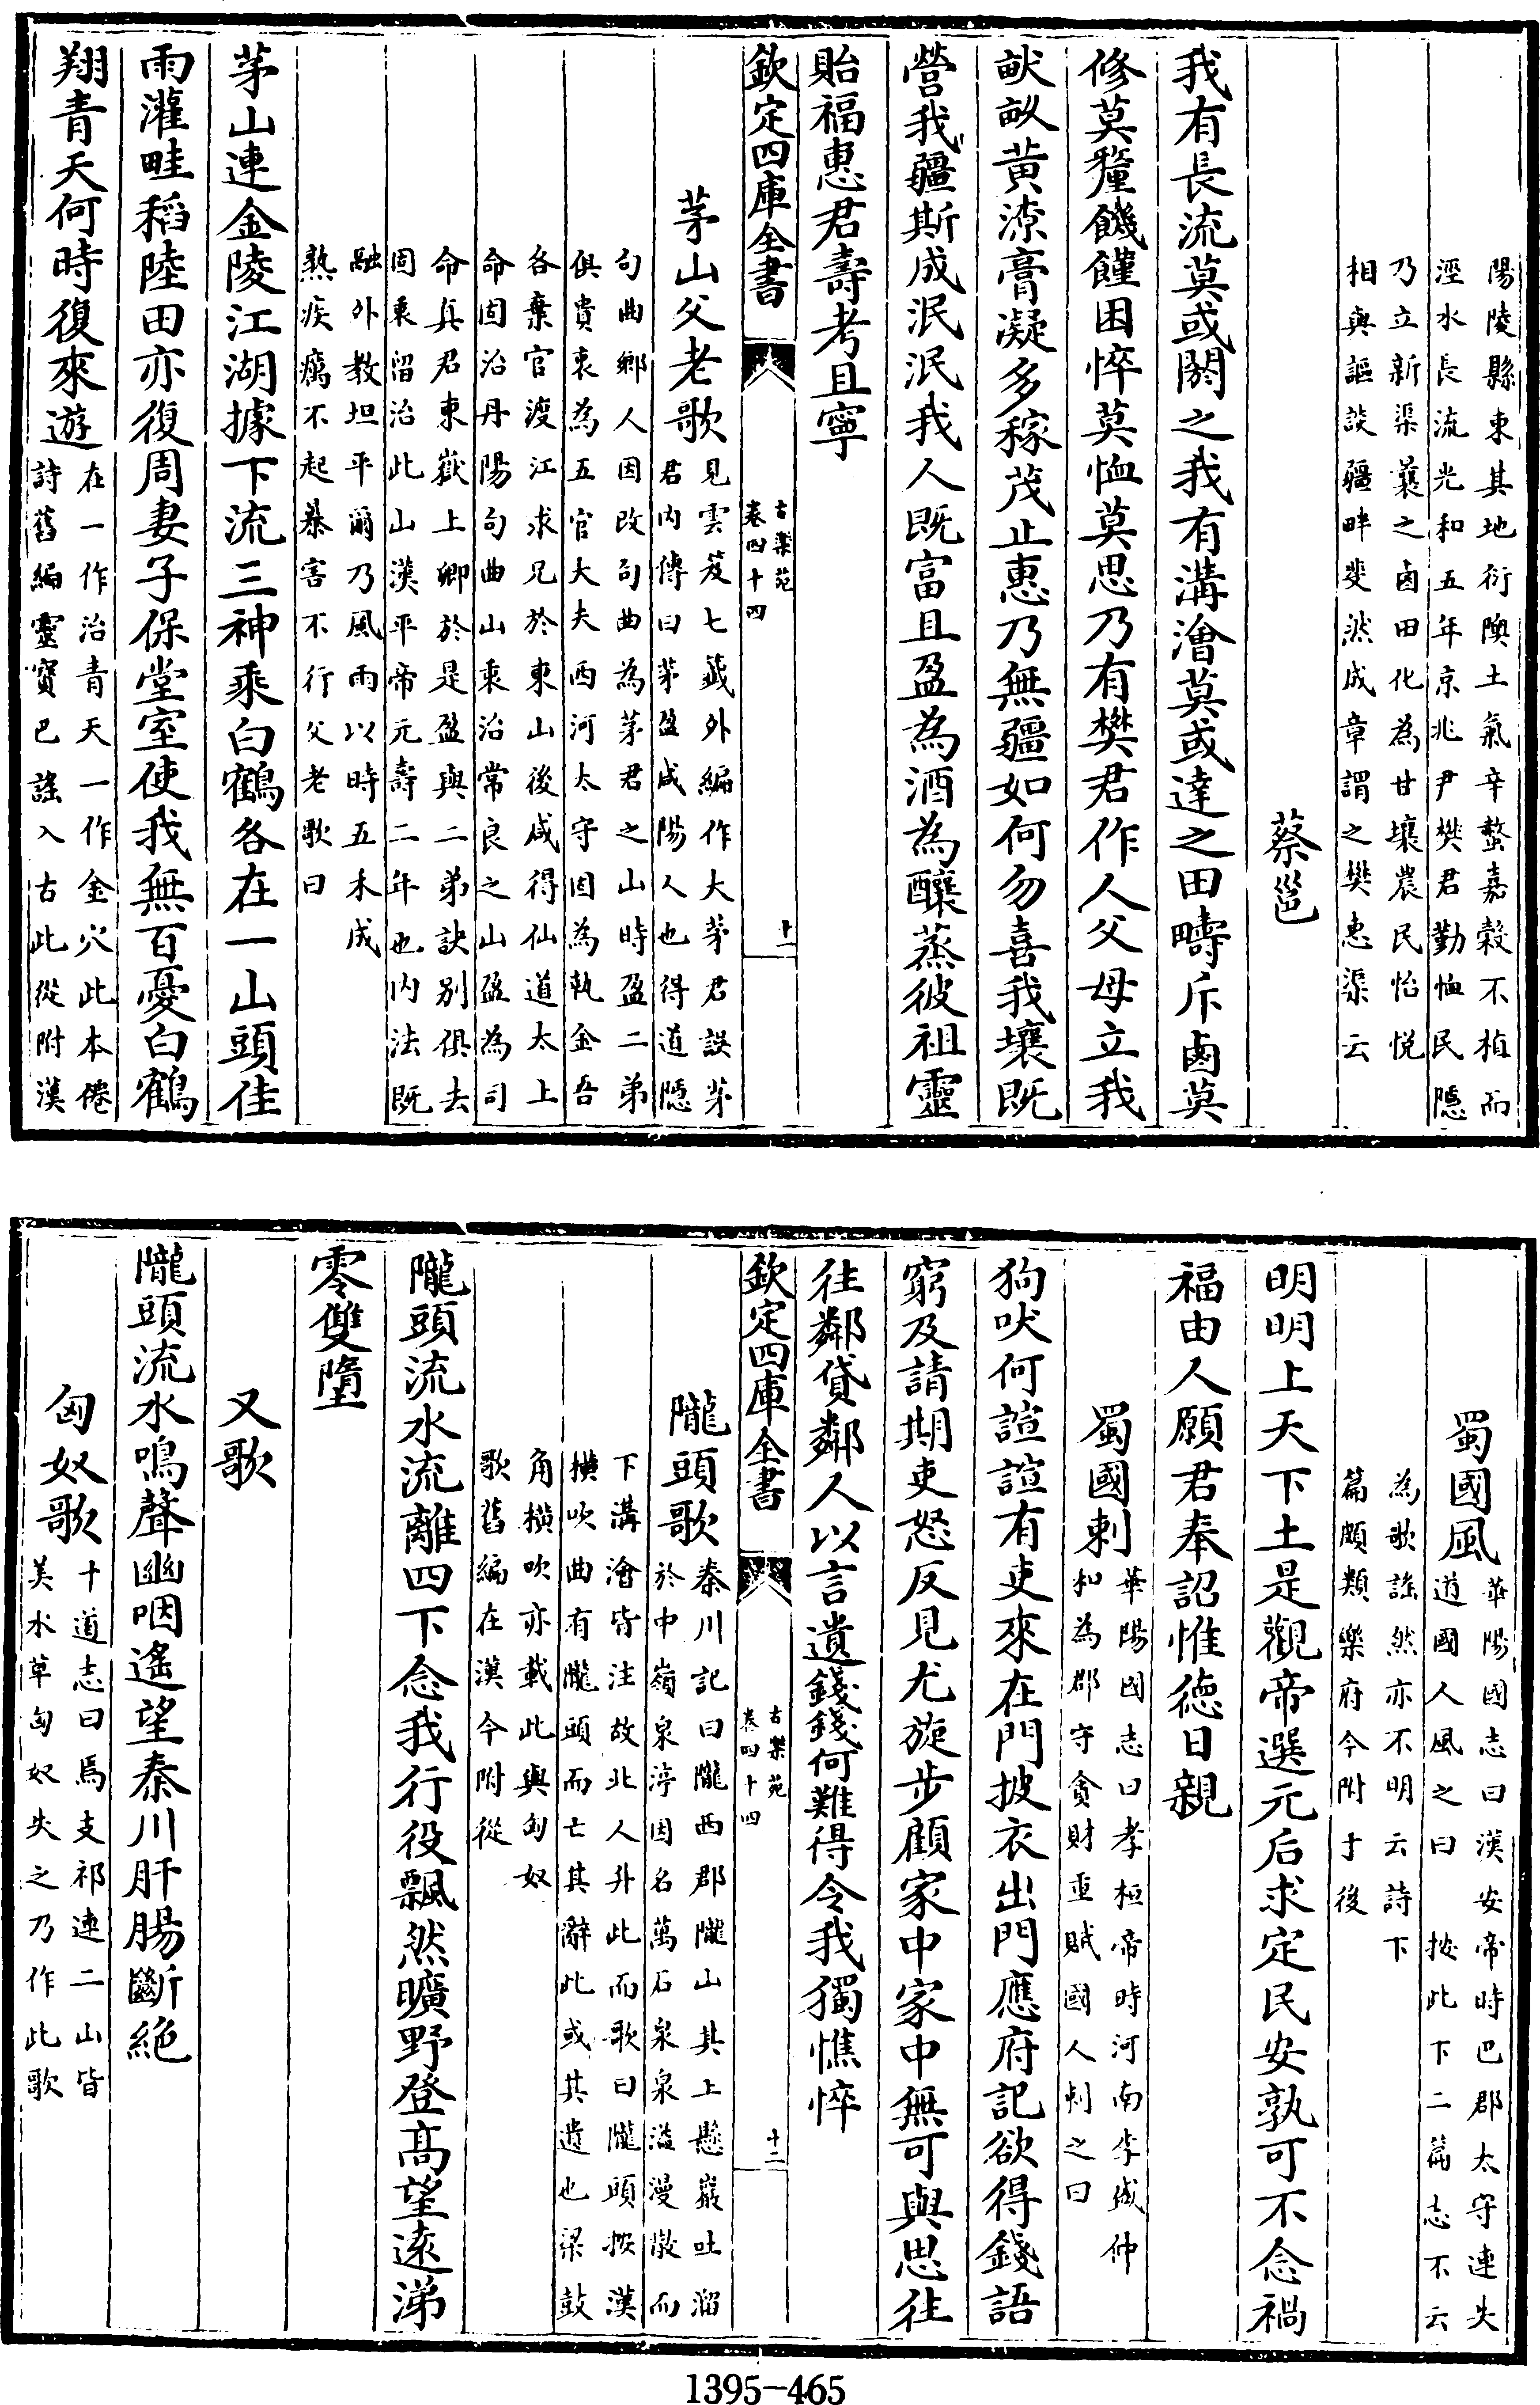 陽陵縣東其地衍隩土氣辛螫嘉穀不植而
涇水長流光和五年京兆尹樊君勤恤民隱
乃立新渠曩之鹵田化為甘壤農民怡悅
相與謳談疆畔斐然成章謂之樊惠渠云
蔡邕
我有長流莫或閼之我有溝澮莫或達之田疇斥鹵莫
修莫釐饑饉困悴莫恤莫思乃有樊君作人父母立我
畎畝黃潦膏凝多稼茂止惠乃無疆如何勿喜我壤既
營我疆斯成泯泯我人既富且盈為酒為釀蒸彼祖靈
貽福惠君壽考且寧
欽定四庫全書
古樂苑
卷四十四
十一
茅山父老歌
見雲笈七籤外編作大茅君誤茅
君内傳曰茅盈咸陽人也得道隱
句曲鄉人因改句曲為茅君之山時盈二弟
俱貴衷為五官大夫西河太守固為執金吾
各棄官渡江求兄於東山後咸得仙道太上
命固治丹陽句曲山衷治常良之山盈為司
命真君東嶽上卿於是盈與二弟訣別俱去
固衷留治此山漢平帝元壽二年也内法既
融外教坦平爾乃風雨以時五禾成
熟疾癘不起暴害不行父老歌曰
茅山連金陵江湖據下流三神乘白鶴各在一山頭佳
雨灌畦稻陸田亦復周妻子保堂室使我無百憂白鶴
翔青天何時復來遊
在一作治青天一作金穴此本僊
詩舊編靈寶巴謠入古此從附漢
蜀國風
華陽國志曰漢安帝時巴郡太守連失
道國人風之曰 按此下二篇志不云
為歌謡然亦不明云詩下
篇頗類樂府今附于後
明明上天下土是觀帝選元后求定民安孰可不念禍
福由人願君奉詔惟德日親
蜀國刺
華陽國志曰孝桓帝時河南李盛仲
和為郡守貪財重賦國人刺之曰
狗吠何諠諠有吏來在門披衣出門應府記欲得錢語
窮及請期吏怒反見尤旋步顧家中家中無可與思往
往鄰貸鄰人以言遺錢錢何難得令我獨憔悴
欽定四庫全書
古樂苑
卷四十四
十二
隴頭歌
秦川記曰隴西郡隴山其上懸巖吐溜
於中嶺泉渟因名萬石泉泉溢漫散而
下溝澮皆注故北人升此而歌曰隴頭按漢
横吹曲有隴頭而亡其辭此或其遺也梁鼓
角横吹亦載此與匈奴
歌舊編在漢今附從
隴頭流水流離四下念我行役飄然曠野登高望遠涕
零雙墮
又歌
隴頭流水鳴聲幽咽遙望秦川肝腸斷絶
匈奴歌
十道志曰焉支祁連二山皆
美水草匈奴失之乃作此歌
1395-465